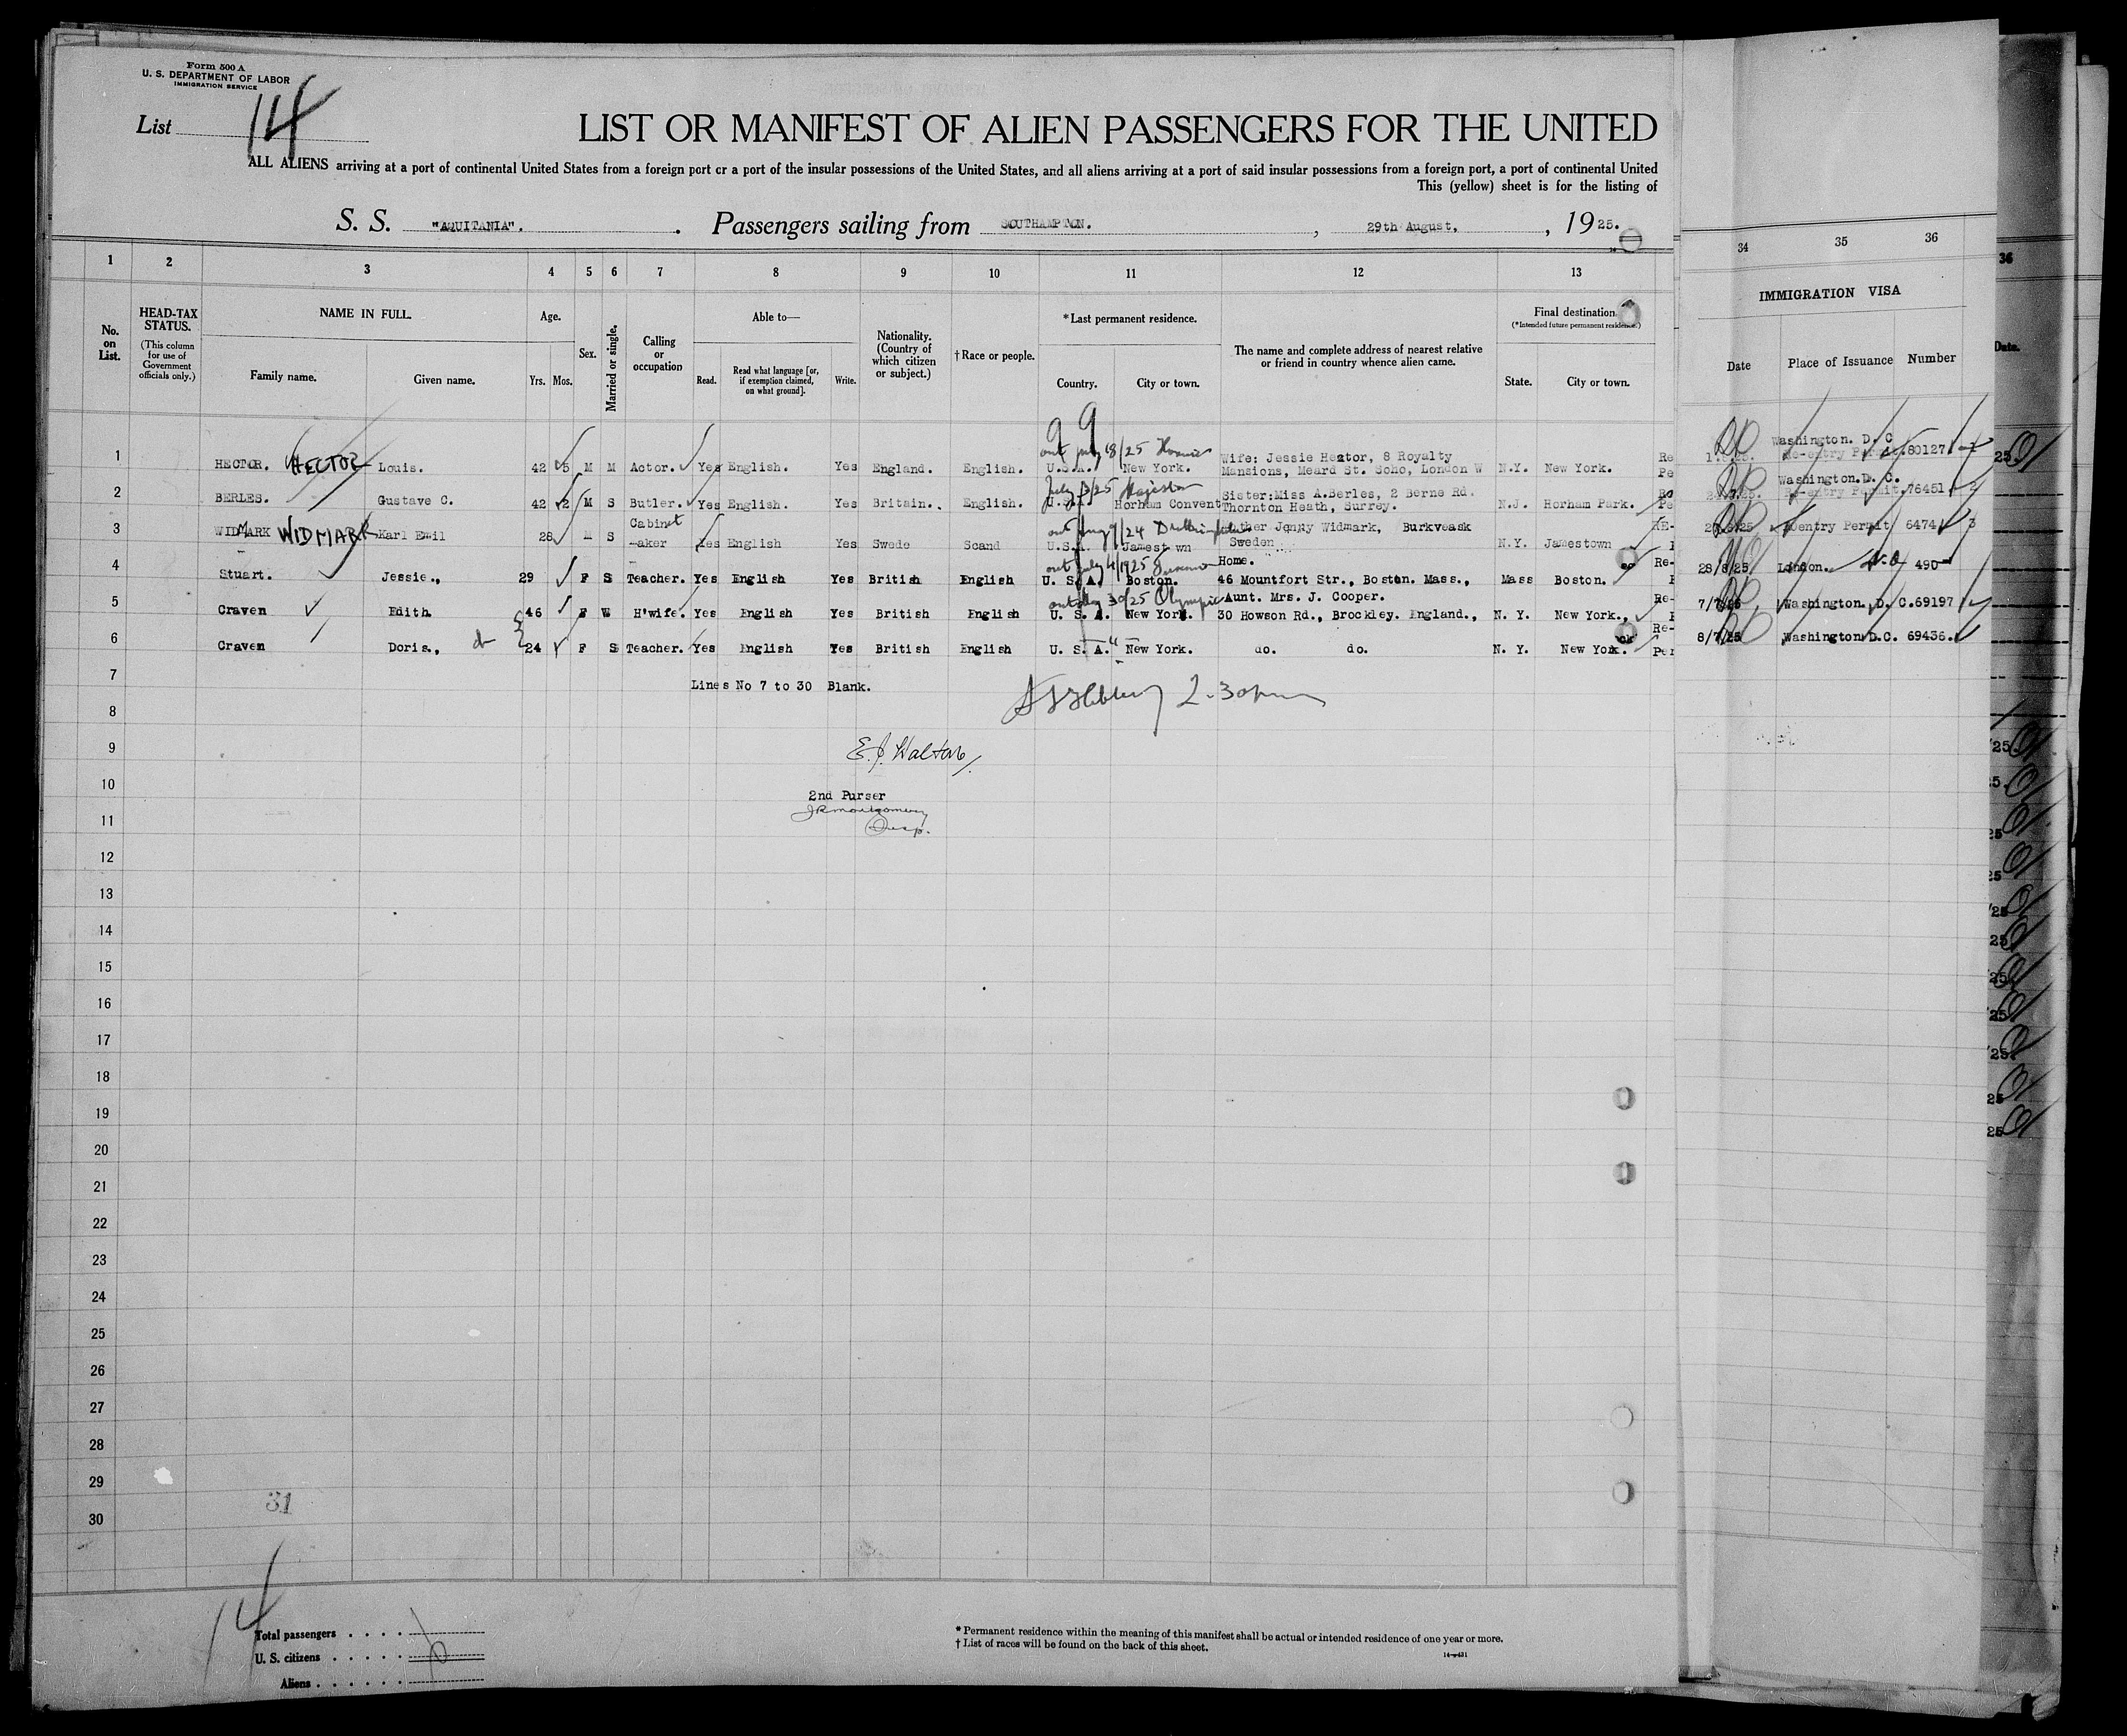 Form 500 A
U. S. DEPARTMENT OF LABOR
IMMIGRATION SERVICE
List 14
LIST OR MANIFEST OF ALIEN PASSENGERS FOR THE UNITED
ALL ALIENS arriving at a port of continental United States from a foreign port or a port of the insular possessions of the United States, and all aliens arriving at a port of said insular possessions from a foreign port, a port of continental United
This (yellow) sheet is for the listing of
S. S. "AQUITANIA". Passengers sailing from SOUTHAMPTON. , 29th August, , 19 25.
1 2 3 4 5 6 7 8 9 10 11 12 13 34 35 36 36
No. on List.
HEAD-TAX STATUS.
(This column for use of Government officials only.)
NAME IN FULL.
Family name. Given name.
Age.
Yrs. Mos.
Sex.
Married or single.
Calling or occupation
Able to—
Read. Read what language [or, if exemption claimed, on what ground]. Write.
Nationality. (Country of which citizen or subject.)
† Race or people.
* Last permanent residence.
Country. City or town.
The name and complete address of nearest relative or friend in country whence alien came.
Final destination.
(*Intended future permanent residence.)
State. City or town.
IMMIGRATION VISA
Date Place of Issuance Number
Date.
out July 18/25
1 HECTOR. HECTOR Louis. 42 5 M M Actor. Yes English. Yes England. English. U.S.A. New York. Wife: Jessie Hector, 8 Royalty Mansions, Meard St. Soho, London W N.Y. New York. Re Washington. D. C Re-entry Permit. 80127
July 3/25 Majestic
2 BERLES. Gustave C. 42 2 M S Butler. Yes English. Yes Britain. English. Horham Convent Sister: Miss A.Berles, 2 Berne Rd. Thornton Heath, Surrey. N.J. Horham Park. Washington.D. C. Re-entry Permit. 76451 2
3 WIDMARK WIDMARK Karl Emil 28 M S Cabinet -aker Yes English Yes Swede Scand U.S.A. Jamest wn Jenny Widmark, Burkveask Sweden N.Y. Jamestown RE- entry Permit 6474 3
out July 4/1925
4 Stuart. Jessie., 29 F S Teacher. Yes English Yes British English U. S. A. Boston. Home. 46 Mountfort Str., Boston. Mass., Mass Boston. Re- 28/8/25 London. 490
30/25 Olympic
5 Craven Edith. 46 F W H'wife. Yes English Yes British English U. S. A. New York. Aunt. Mrs. J. Cooper. 30 Howson Rd., Brockley. England., N. Y. New York., Re- 7/7/25 Washington. D. C. 69197
6 Craven Doris., 24 F S Teacher. Yes English Yes British English U. S. A. New York. do. do. N. Y. New York. Re- Per 8/7/25 Washington D.C. 69436.
7 Lines No 7 to 30 Blank.
2.30pm
8
9 E. J. Walton
10 2nd Purser
11 J R Montgomery
12
13
14
15
16
17
18
19
20
21
22
23
24
25
26
27
28
29
31
30
14
Total passengers . . . .
U. S. citizens . . . . .
Aliens . . . . . .
* Permanent residence within the meaning of this manifest shall be actual or intended residence of one year or more.
† List of races will be found on the back of this sheet.